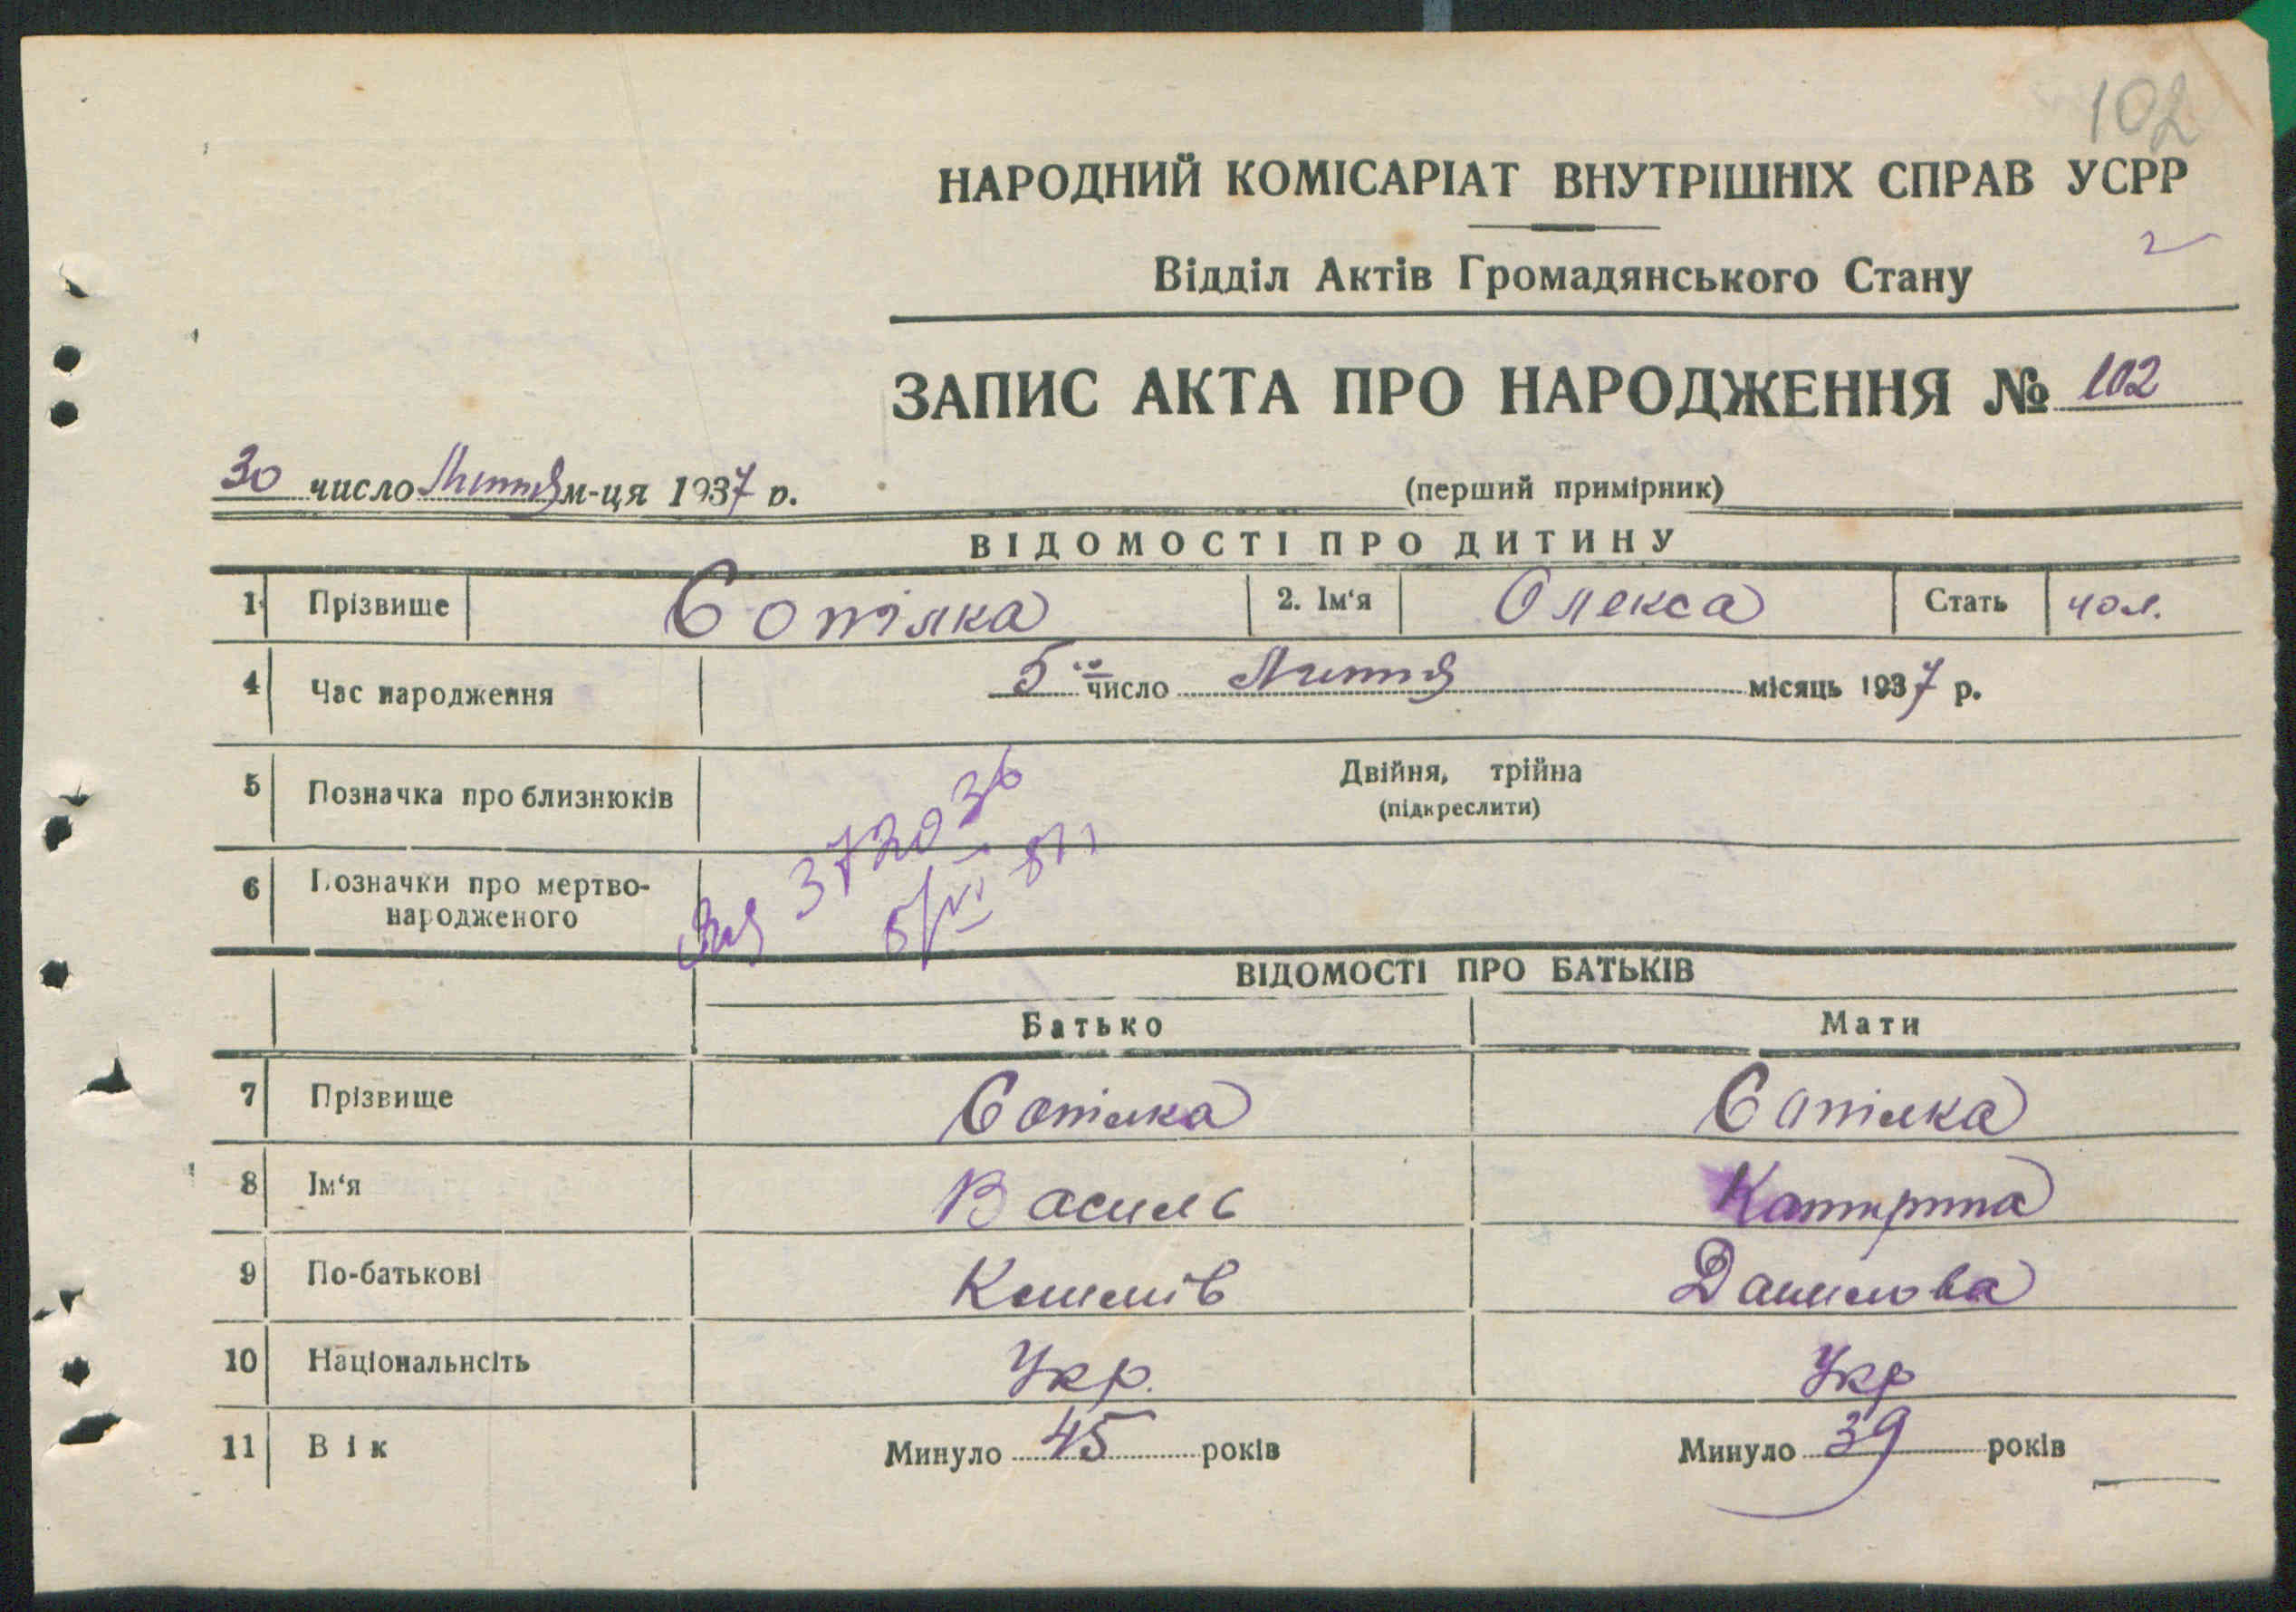 102
НАРОДНИЙ КОМІСАРІАТ ВНУТРІШНІХ СПРАВ УСРР
Відділ Актів Громадянського Стану
ЗАПИС АКТА ПРО НАРОДЖЕННЯ № 102
30 число Липня м-ця 1937 р. (перший примірник)
ВІДОМОСТІ ПРО ДИТИНУ
1 Прізвище Сопілка 2. Ім'я Олекса Стать чол.
4 Час народження 5 число Липня місяць 1937 р.
5 Позначка про близнюків Двійня, трійна
(підкреслити)
6 Позначки про мертво-
народженого
372036
ВІДОМОСТІ ПРО БАТЬКІВ
Батько Мати
7 Прізвище Сопілка Сопілка
8 Ім'я Василь Катирина
9 По-батькові Климів Данилова
10 Національнсіть Укр. Укр
11 Вік Минуло 45 років Минуло 39 років